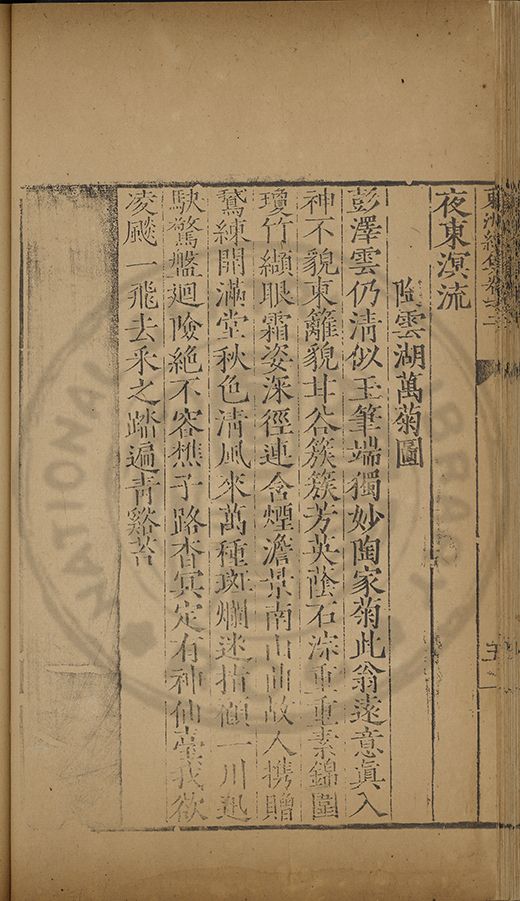 夜東溟流
陶雲湖萬菊圖
彭澤雲仍清似玉筆端獨妙陶家菊此翁遠意真入
神不貌東籬貌甘谷簇簇芳英蔭石淙重重素錦圍
瓊竹纈眼霜姿深徑連含煙澹景南山曲故人携贈
鵞練開滿堂秋色清風來萬種斑斕迷指顧一川迅
駛驚盤廻險絕不容樵子路杳冥定有神仙臺我欲
凌飈一飛去采之踏遍青谿苔
NATIONAL LIBRARY